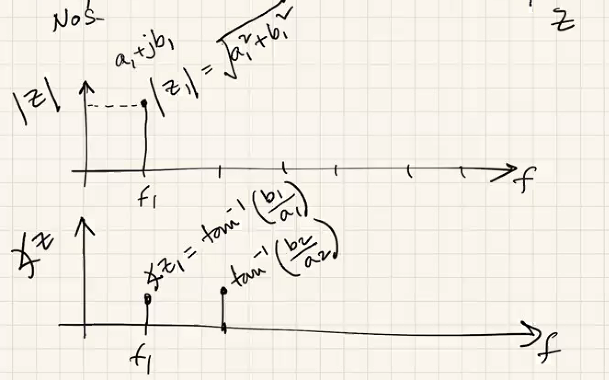 Nos
z
a₁+jb₁
|z| |z₁| = √(a₁²+b₁²)
f₁ f
∡z ∡z₁ = tan⁻¹(b₁/a₁) tan⁻¹(b₂/a₂)
f₁ f